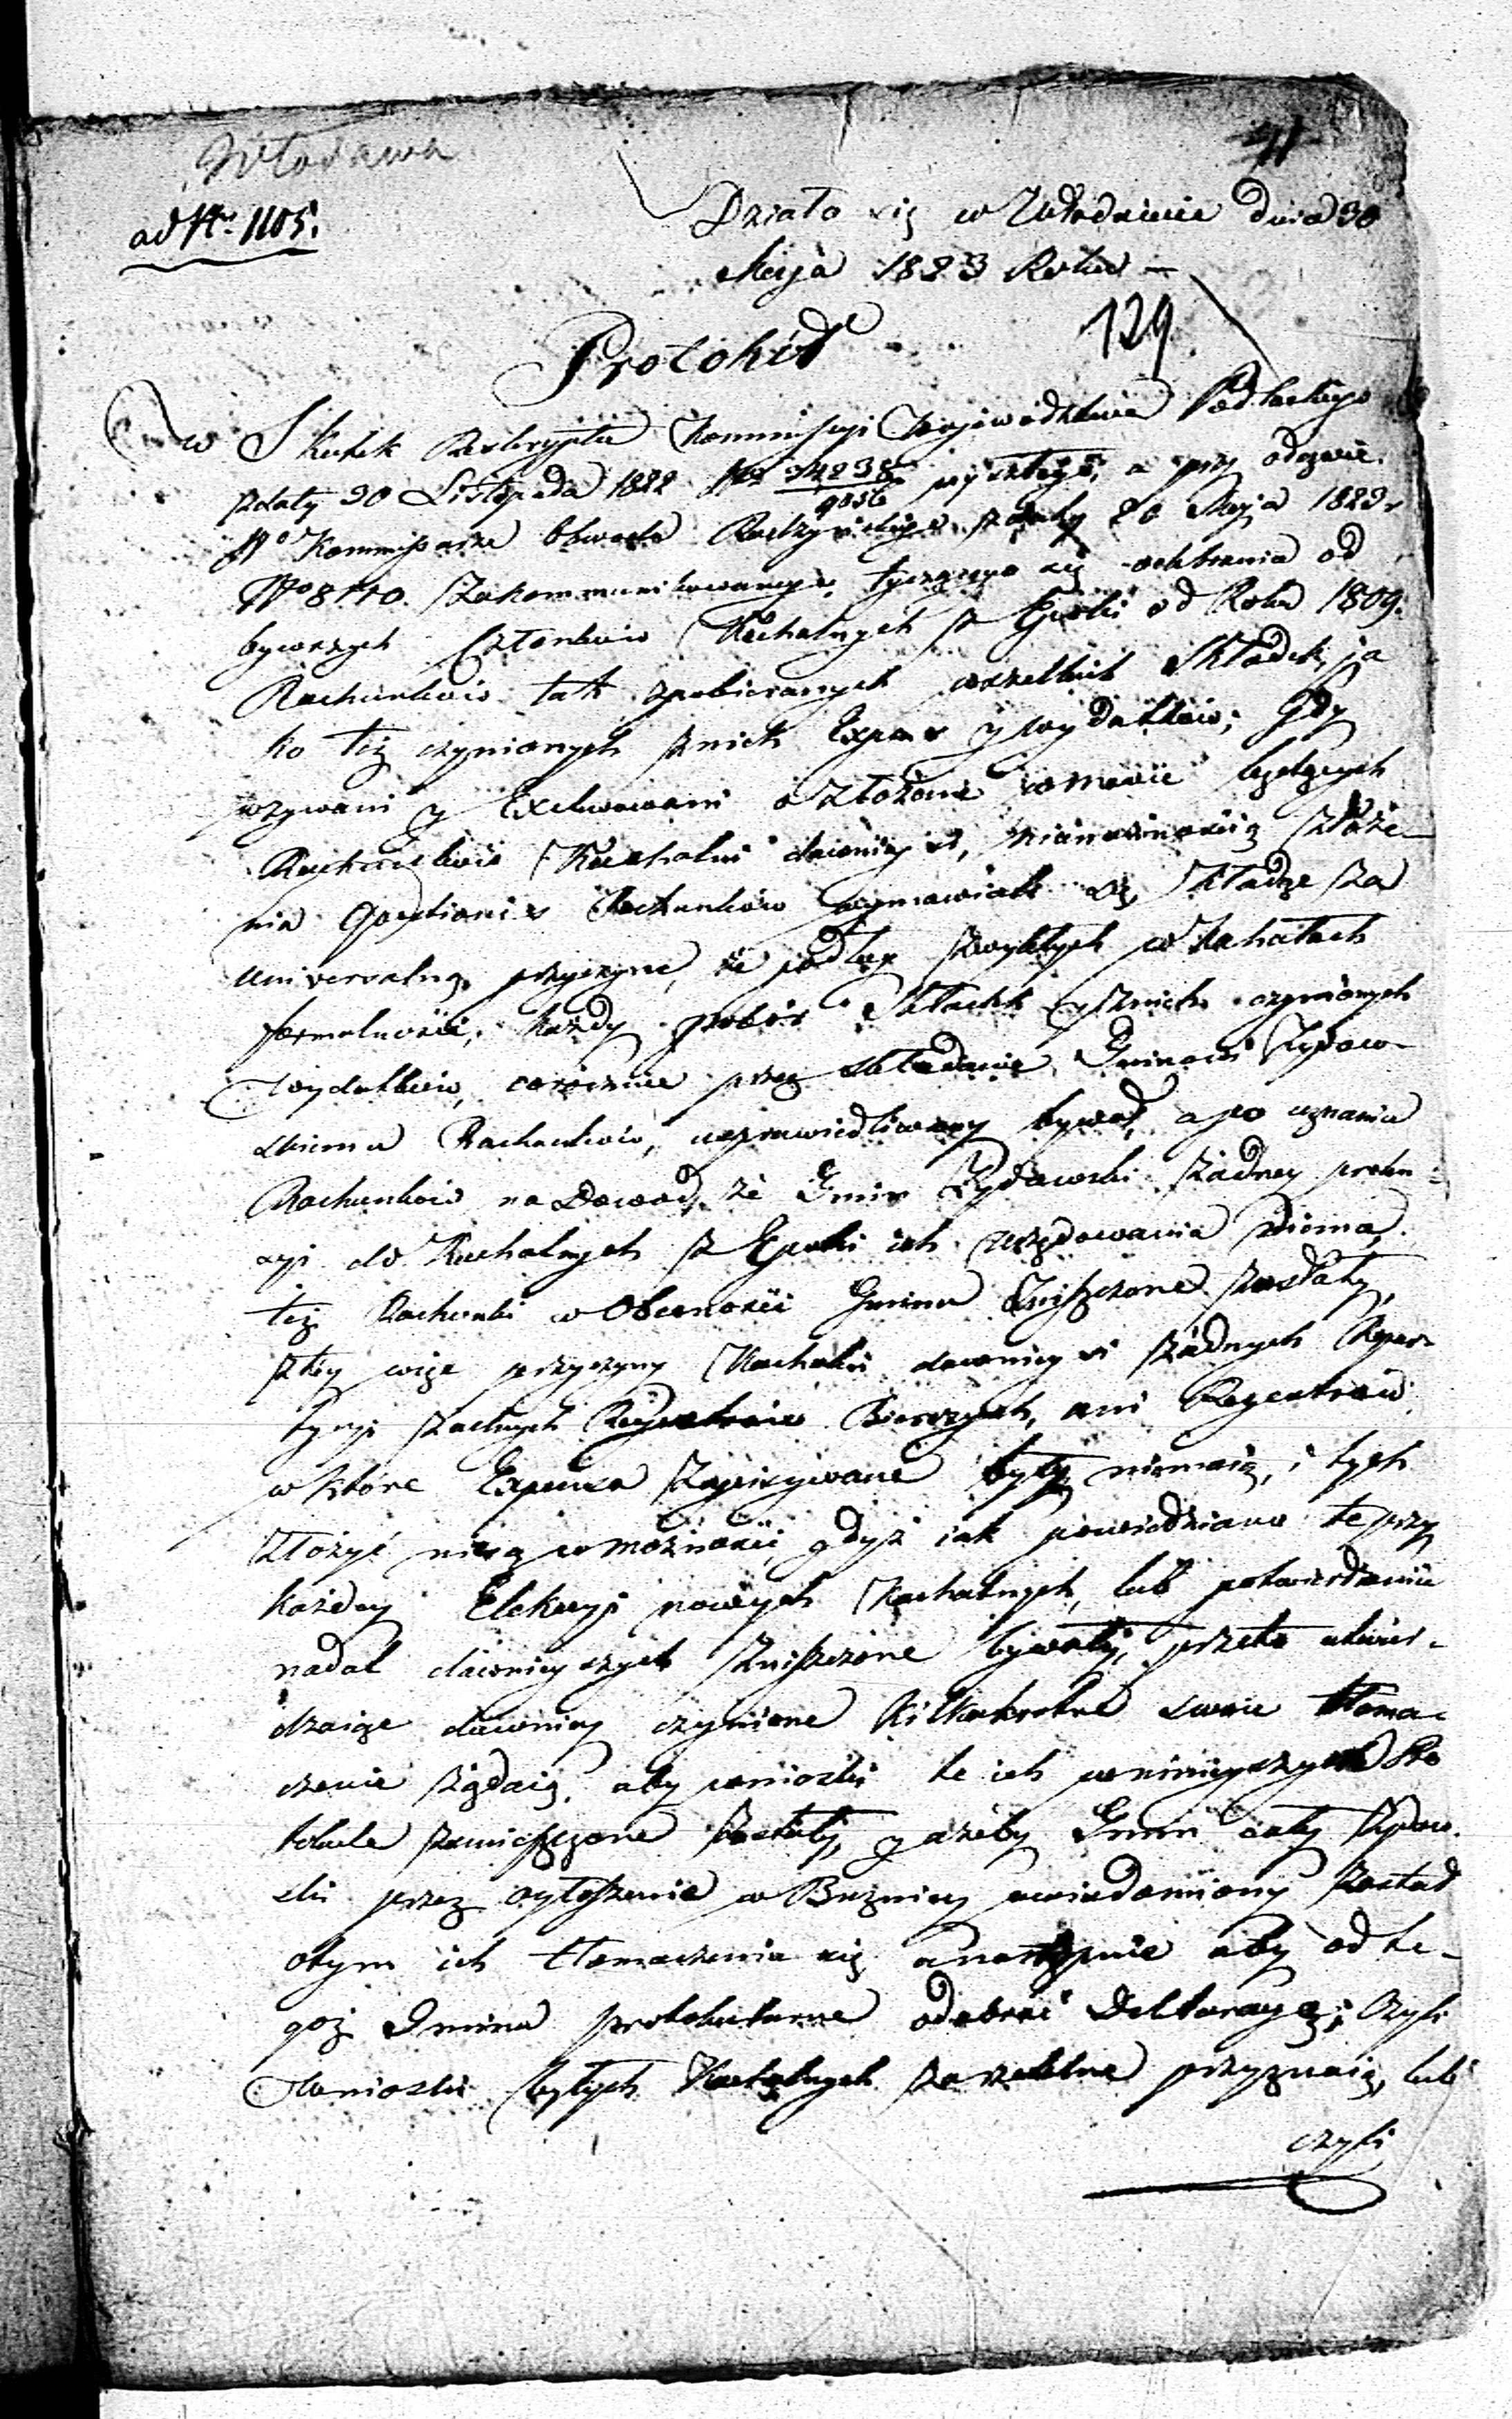 Włodawa
41
ad Nr. 1105.
Działo się w Włodawie dnia 30
Maja 1823 Roku —
129
Protokół
w Skutek Reskryptu Kommissyi Woiewodztwa Podlaskiego
z daty 30 Listopada 1822 No 34238 a przy odezwie
Wo Kommissarza Obwodu Radzyńskiego z daty 20 Maja 1823 r
No 8110. zakommunikowanego, tyczącego się odebrania od
bywszych Członków Kachalnych z Epoki od Roku 1809.
Rachunków tak z pobieranych wszelkich Składek, ja
ko też czynionych z nich Expens y wydatków; Gdy
wzywani y Exekwowani o złożenie w mowie będących
Rachunków Kachalni dawniejsi, złoże-
nia Qaestionis Rachunków wymawiali się, kładąc za
uniwersalną przyczynę, że podług zwykłych w Kahałach
formalności, każdy pobór Składek y z nich czynionych
wydatków, corocznie przez składanie Gminowi Żydow-
skiemu Rachunków, usprawiedliwiany bywał, a po uznaniu
Rachunków na Dowód, że Gmin Żydowski żadney preten-
syi do Kachalnych z Epoki ich urzędowania niema,
też Rachunki w Obecności Gminu Zniszczone zostały,
z tey więc przyczyny Kachalni dawniejsi żadnych Repar-
tycyi żadnych Regestrów Bierczych, ani Regestrów
w które Expensa zapisywane były niemaią, i tych
złożyć nie są w możności, gdyż iak powiedziano te przy
każdey Elekcyi nowych Kachalnych, lub potwierdzeniu
nadal dawniejszych zniszczone bywały, przeto utwier-
dzaiąc dawniey czynione Kilkakrotne swoie tłoma-
czenie żądaią, aby wnioski te ich w niniejszym Pro
tokule zamieszczone zostały, y ażeby Gmin cały Żydow-
ski przez ogłoszenie w Bużnicy uwiadomiony został
o tym ich tłomaczeniu się a następnie aby od te-
goż Gminu protokularne odebrać Deklaracye; Czyli
Wnioski byłych Kachalnych za rzetelne przyznaią, lub
czyli